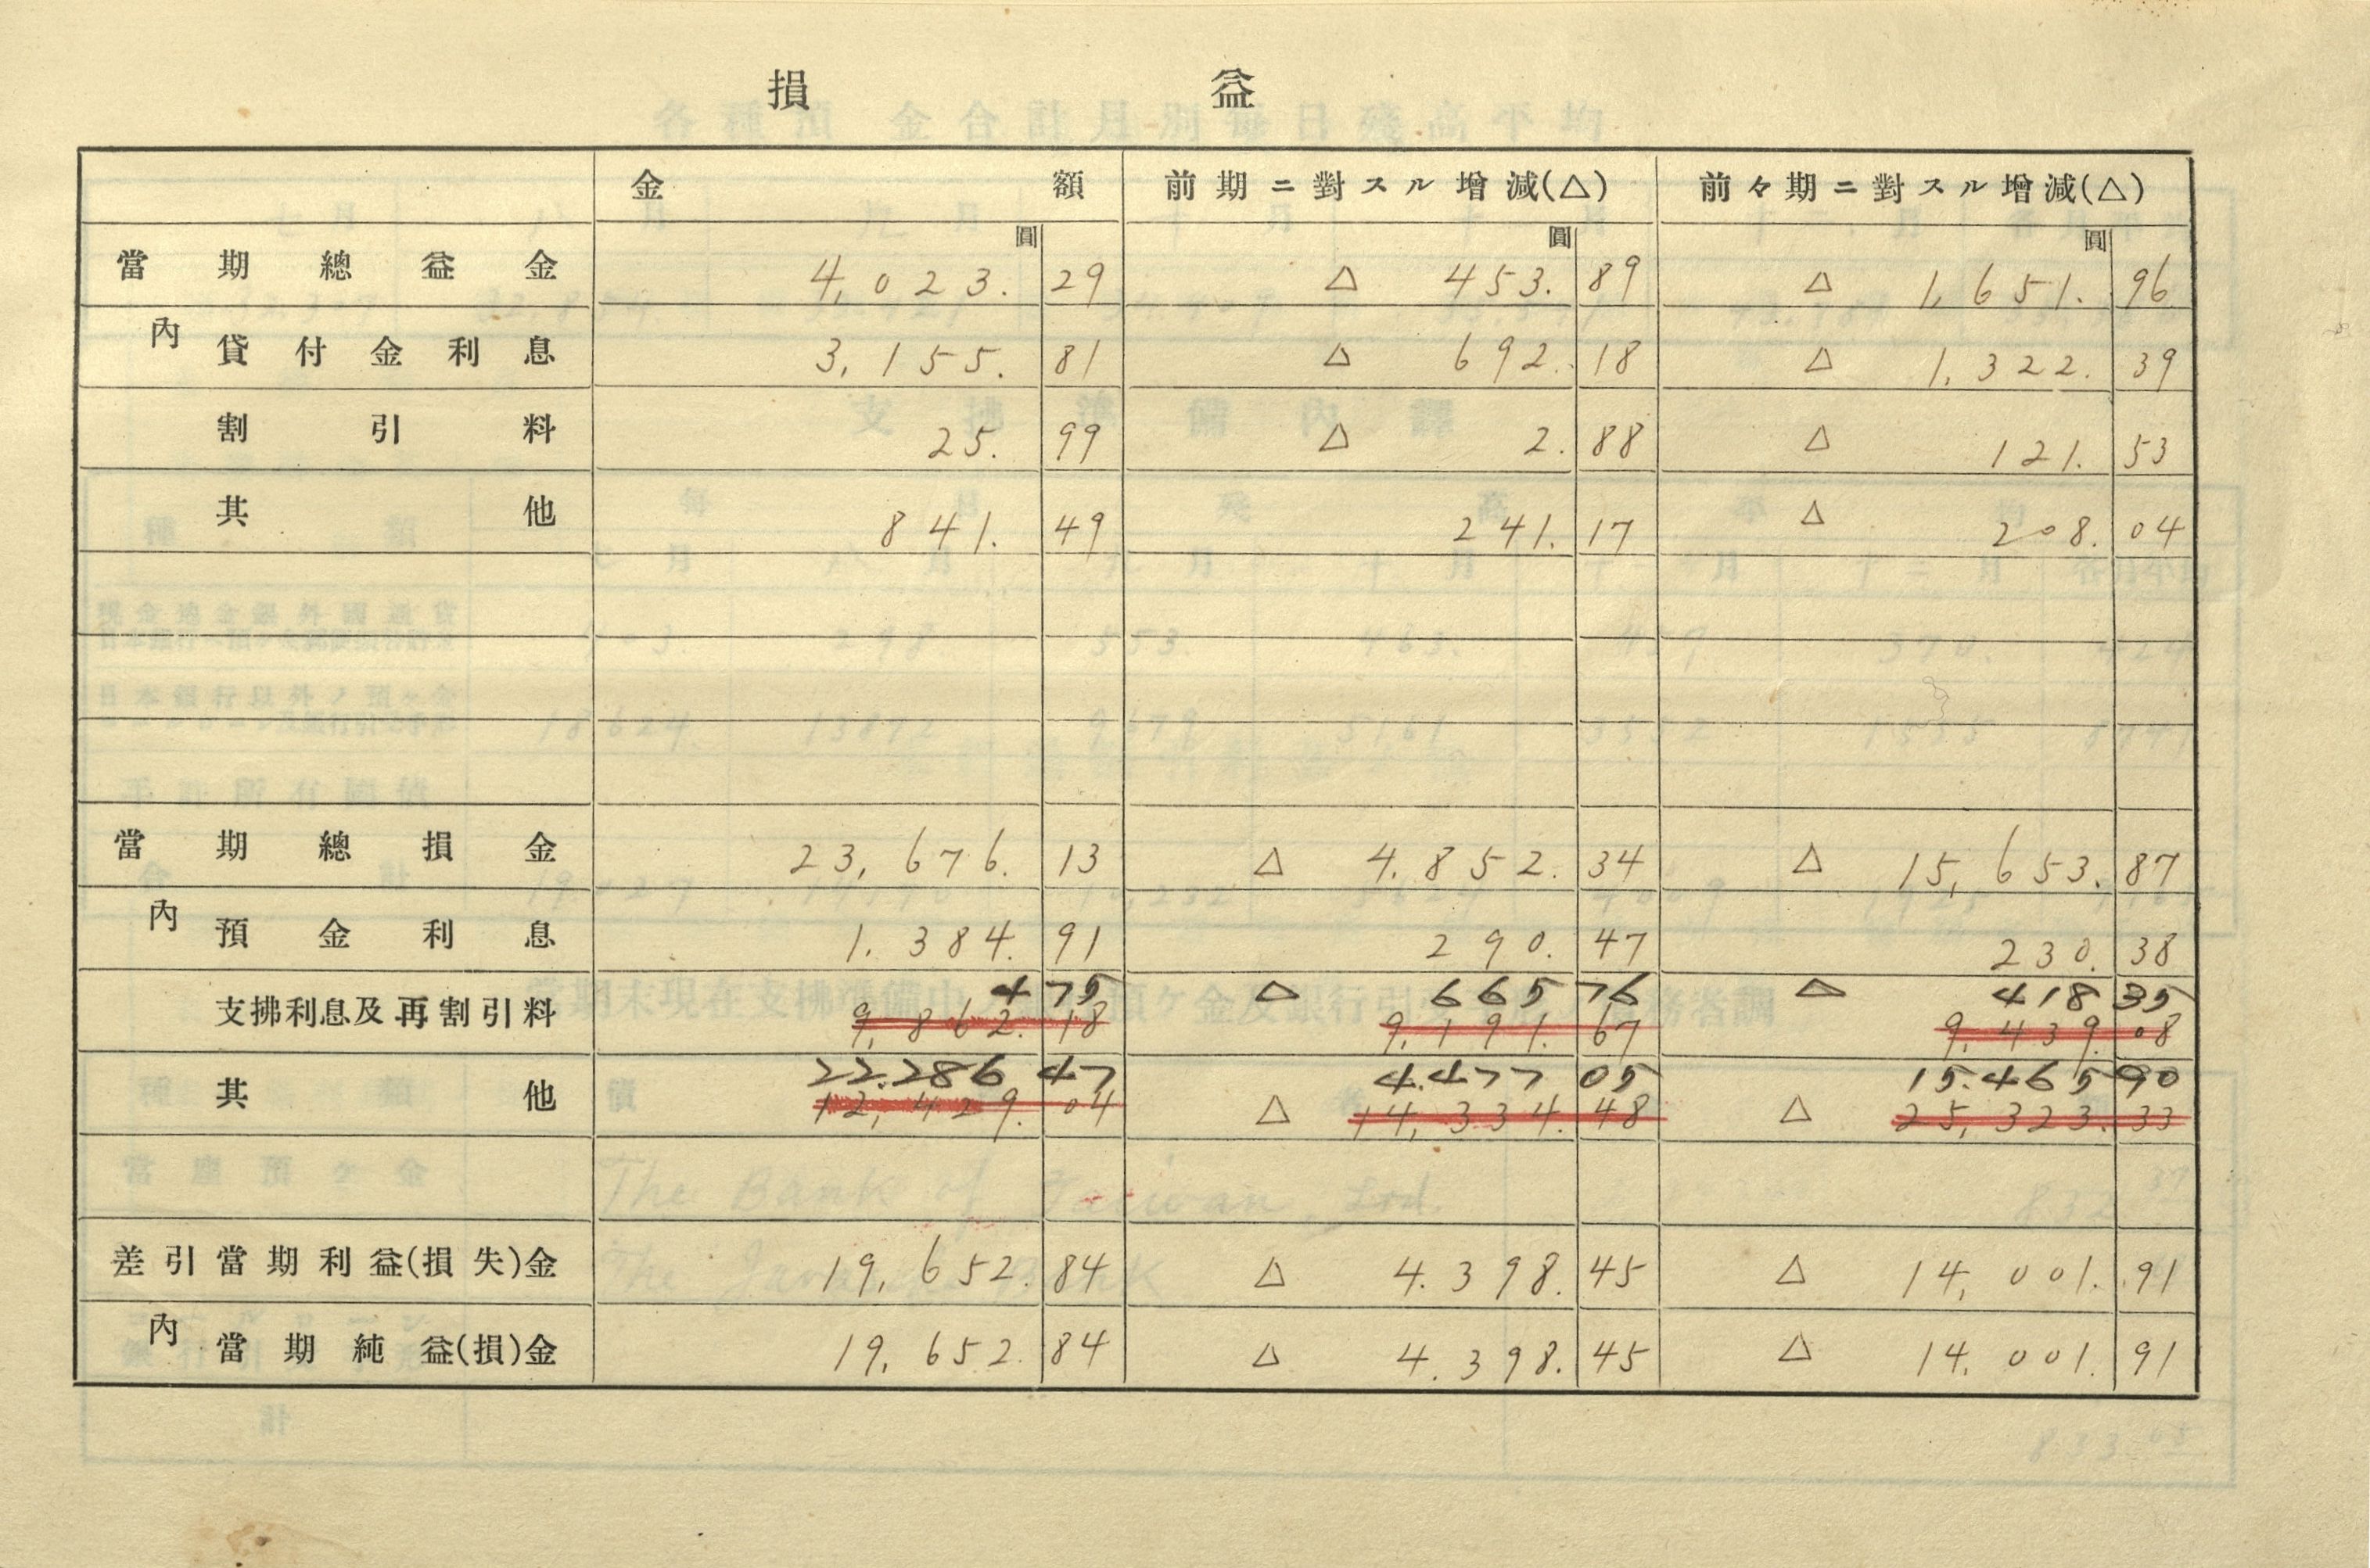 損 益
金 額 前期ニ對スル増減(△) 前々期ニ對スル増減(△)
圓 圓 圓
當期總益金 4,023. 29 △ 453. 89 △ 1,651. 96
內 貸付金利息 3,155. 81 △ 692. 18 △ 1,322. 39
割引料 25. 99 △ 2. 88 △ 121. 53
其他 841. 49 241. 17 △ 208. 04
當期總損金 23,676. 13 △ 4.852. 34 △ 15,653. 87
內 預金利息 1.384. 91 290. 47 230. 38
4 75 △ 665 76 △ 418 35
支拂利息及再割引料 9,862. 18 9,191. 67 9,439. 08
22.286 47 4.477 05 15.465 90
其他 12,429. 04 △ 14,334. 48 △ 25,323. 33
差引當期利益(損失)金 19,652. 84 △ 4.398. 45 △ 14,001. 91
內 當期純益(損)金 19,652. 84 △ 4.398. 45 △ 14.001. 91